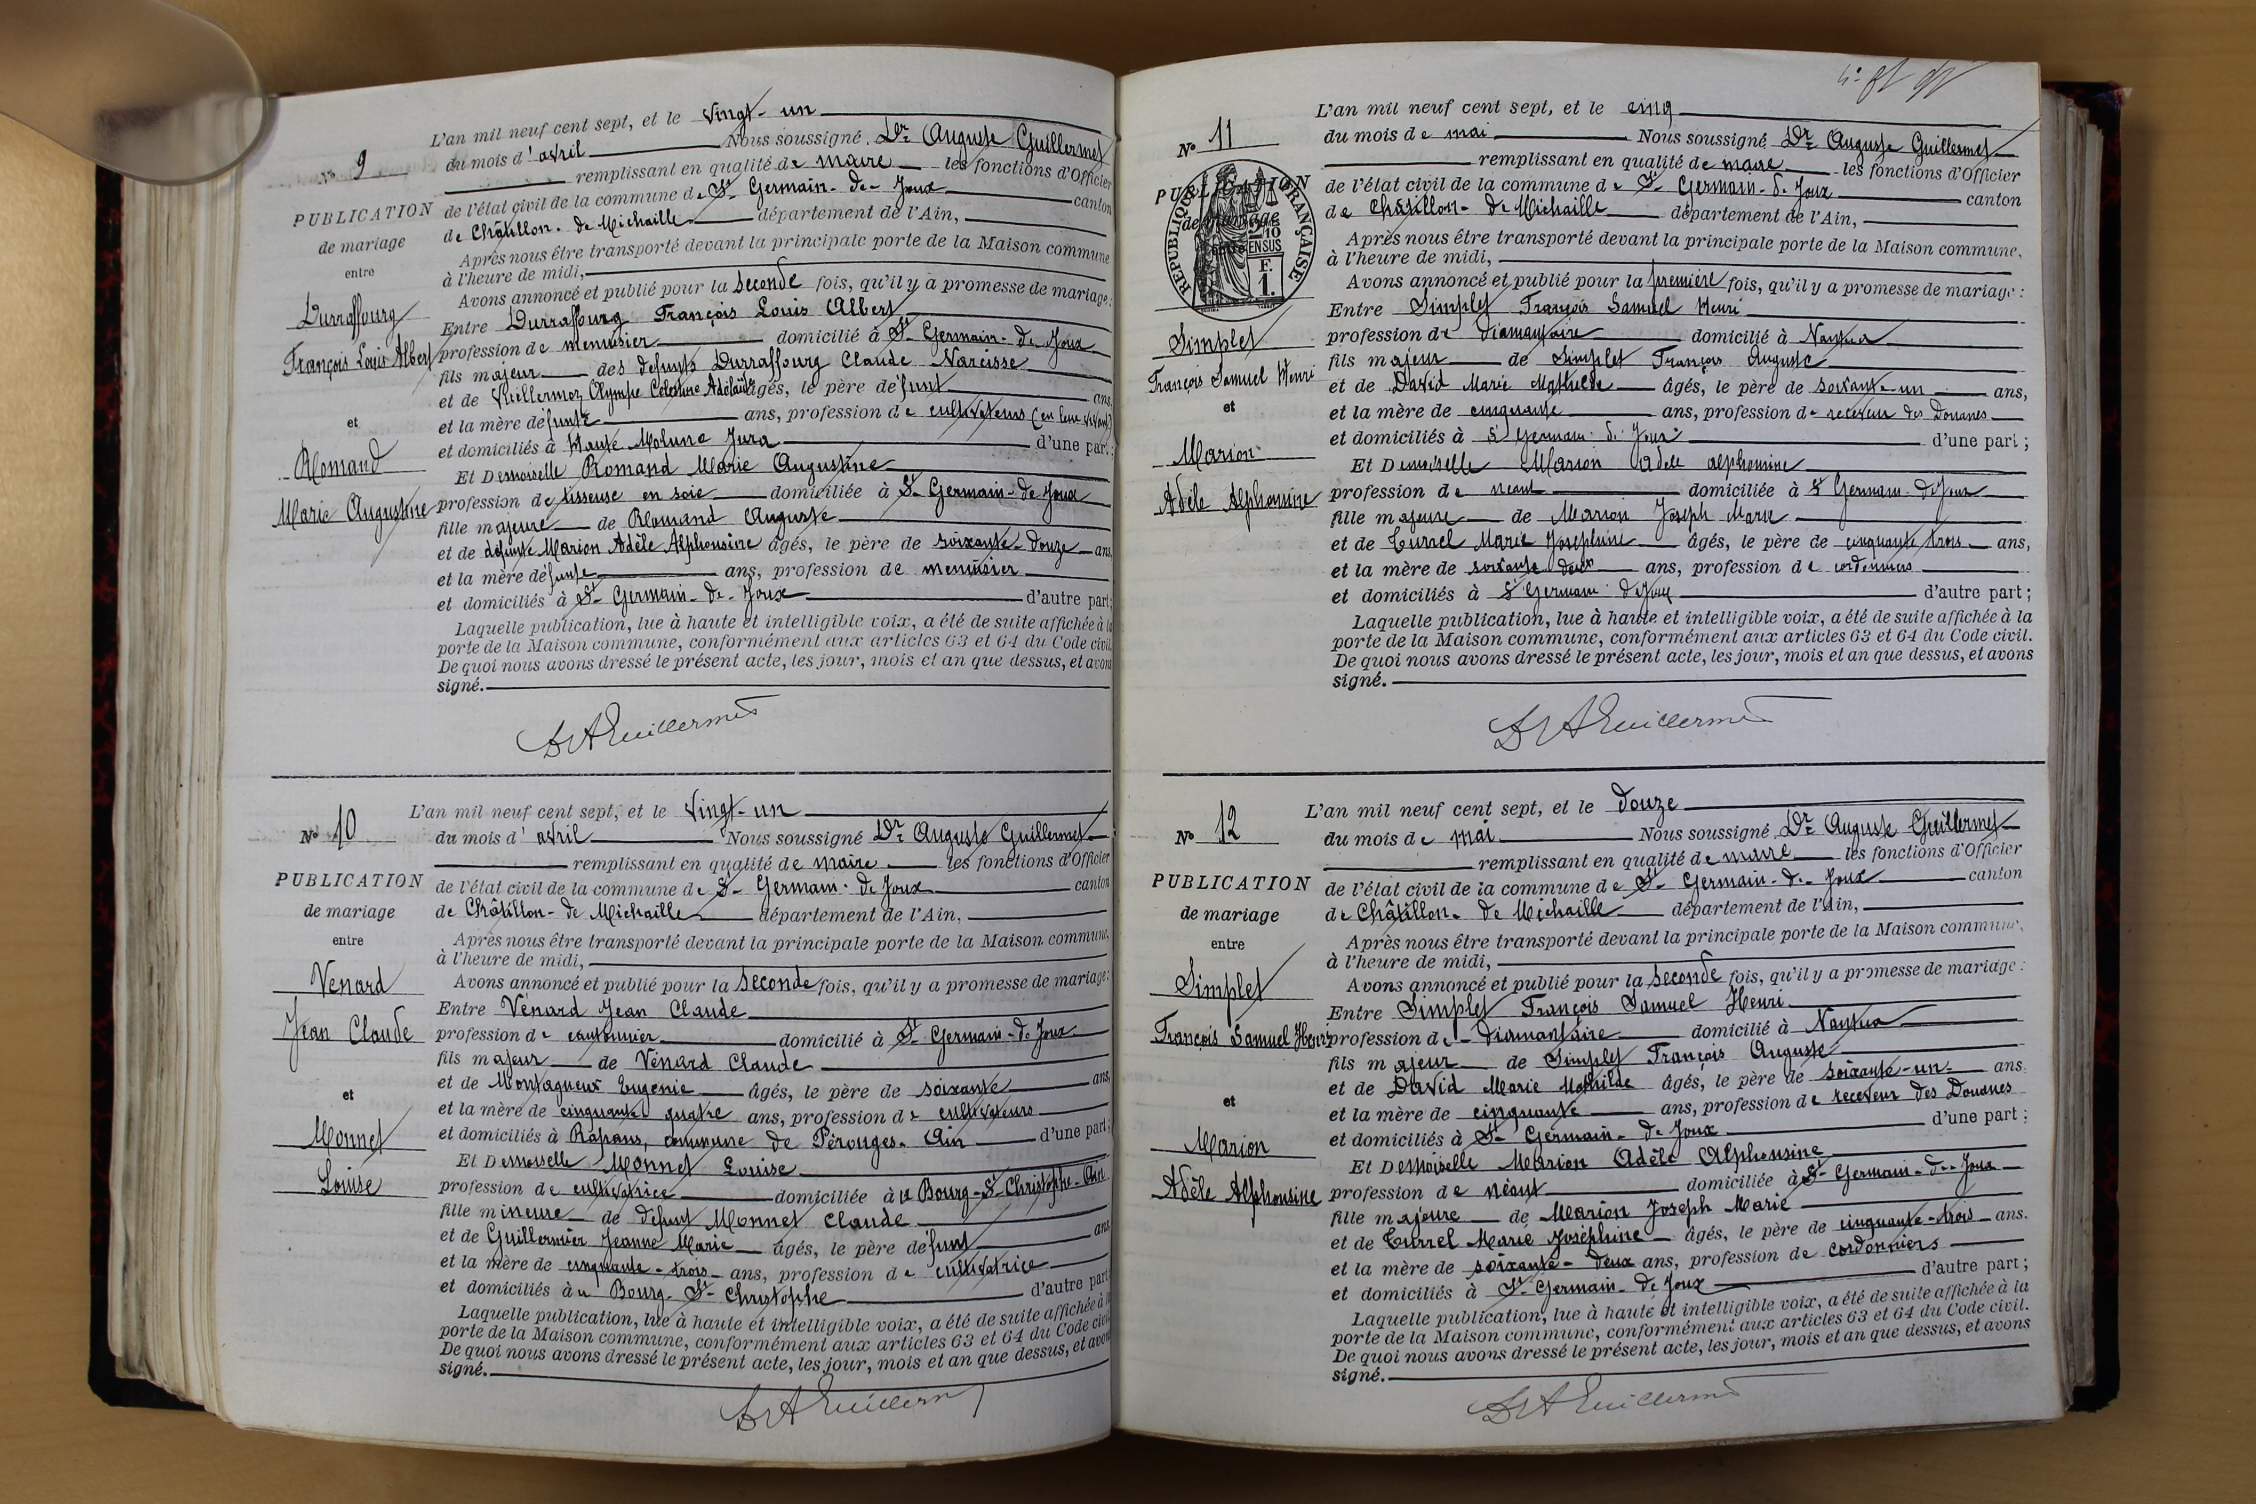 N° 9
PUBLICATION
de mariage
entre
Durraffourg
François Louis Albert
et
Romand
Marie Augustine
L'an mil neuf cent sept, et le vingt-un
du mois d'avril Nous soussigné, Dr Auguste Guillermet
remplissant en qualité de maire les fonctions d'Officier
de l'état civil de la commune de St Germain-de-Joux canton
de Châtillon-de Michaille département de l'Ain,
Après nous être transporté devant la principale porte de la Maison commune
à l'heure de midi,
Avons annoncé et publié pour la seconde fois, qu'il y a promesse de mariage :
Entre Durraffourg François Louis Albert
profession de menuisier domicilié à St Germain-de Joux
fils majeur des defunts Durraffourg Claude Narcisse
et de Vuillermoz Olympe Célestine Adélaïde âgés, le père défunt ans,
et la mère défunte ans, profession de cultivateurs (en leur vivant)
et domiciliés à Haute Molune Jura d'une part ;
Et Demoiselle Romand Marie Augustine
profession de tisseuse en soie domiciliée à St Germain-de Joux
fille majeure de Romand Auguste
et de défunte Marion Adèle Alphonsine âgés, le père de soixante-douze ans,
et la mère défunte ans, profession de menuisier
et domiciliés à St Germain-de-Joux d'autre part ;
Laquelle publication, lue à haute et intelligible voix, a été de suite affichée à la
porte de la Maison commune, conformément aux articles 63 et 64 du Code civil.
De quoi nous avons dressé le présent acte, les jour, mois et an que dessus, et avons
signé.
Dr A Guillermet
N° 10
PUBLICATION
de mariage
entre
Venard
Jean Claude
et
Monnet
Louise
L'an mil neuf cent sept, et le vingt-un
du mois d'avril Nous soussigné Dr Auguste Guillermet
remplissant en qualité de maire les fonctions d'Officier
de l'état civil de la commune de St Germain-de Joux canton
de Châtillon-de Michaille département de l'Ain,
Après nous être transporté devant la principale porte de la Maison commune,
à l'heure de midi,
Avons annoncé et publié pour la seconde fois, qu'il y a promesse de mariage :
Entre Vénard Jean Claude
profession de cantonnier domicilié à St Germain-de Joux
fils majeur de Vénard Claude
et de Montagneux Eugénie âgés, le père de soixante ans,
et la mère de cinquante quatre ans, profession de cultivateurs
et domiciliés à Rapans, commune de Pérouges-Ain d'une part ;
Et Demoiselle Monnet Louise
profession de cultivatrice domiciliée à u Bourg-St-Christophe-Ain
fille mineure de défunt Monnet Claude
et de Guillermier Jeanne Marie âgés, le père défunt ans
et la mère de cinquante-trois ans, profession de cultivatrice
et domiciliés à u Bourg-St-Christophe d'autre part
Laquelle publication, lue à haute et intelligible voix, a été de suite affichée à la
porte de la Maison commune, conformément aux articles 63 et 64 du Code civil
De quoi nous avons dressé le présent acte, les jour, mois et an que dessus, et avons
signé.
Dr A Guillermet
N° 11
PUBLICATION
de mariage
entre
RÉPUBLIQUE FRANÇAISE
2/10
EN SUS
F.
1.
Simplet
François Samuel Henri
et
Marion
Adèle Alphonsine
L'an mil neuf cent sept, et le cinq
du mois de mai Nous soussigné Dr Auguste Guillermet
remplissant en qualité de maire les fonctions d'Officier
de l'état civil de la commune de St Germain-d. Joux canton
de Châtillon-de Michaille département de l'Ain,
Après nous être transporté devant la principale porte de la Maison commune,
à l'heure de midi,
Avons annoncé et publié pour la première fois, qu'il y a promesse de mariage :
Entre Simplet François Samuel Henri
profession de diamantaire domicilié à Nantua
fils majeur de Simplet François Auguste
et de David Marie Mathilde âgés, le père de soixante-un ans,
et la mère de cinquante ans, profession de receveur des Douanes
et domiciliés à St Germain-d. Joux d'une part ;
Et Demoiselle Marion Adèle alphonsine
profession de néant domiciliée à St Germain-de Joux
fille majeure de Marion Joseph Marie
et de Turrel Marie Joséphine âgés, le père de cinquante trois ans,
et la mère de soixante deux ans, profession de cordonniers
et domiciliés à St Germain-de Joux d'autre part ;
Laquelle publication, lue à haute et intelligible voix, a été de suite affichée à la
porte de la Maison commune, conformément aux articles 63 et 64 du Code civil.
De quoi nous avons dressé le présent acte, les jour, mois et an que dessus, et avons
signé.
Dr A Guillermet
N° 12
PUBLICATION
de mariage
entre
Simplet
François Samuel Henri
et
Marion
Adèle Alphonsine
L'an mil neuf cent sept, et le douze
du mois de mai Nous soussigné Dr Auguste Guillermet
remplissant en qualité de maire les fonctions d'Officier
de l'état civil de la commune de St Germain-de-Joux canton
de Châtillon-de Michaille département de l'Ain,
Après nous être transporté devant la principale porte de la Maison commune,
à l'heure de midi,
Avons annoncé et publié pour la seconde fois, qu'il y a promesse de mariage :
Entre Simplet François Samuel Henri
profession de diamantaire domicilié à Nantua
fils majeur de Simplet François Auguste
et de David Marie Mathilde âgés, le père de soixante-un ans.
et la mère de cinquante ans, profession de receveur des Douanes
et domiciliés à St Germain-de Joux d'une part ;
Et Demoiselle Marion Adèle Alphonsine
profession de néant domiciliée à St Germain-de-Joux
fille majeure de Marion Joseph Marie
et de Turrel Marie Joséphine âgés, le père de cinquante-trois ans.
et la mère de soixante-deux ans, profession de cordonniers
et domiciliés à St Germain-de Joux d'autre part ;
Laquelle publication, lue à haute et intelligible voix, a été de suite affichée à la
porte de la Maison commune, conformément aux articles 63 et 64 du Code civil.
De quoi nous avons dressé le présent acte, les jour, mois et an que dessus, et avons
signé.
Dr A Guillermet